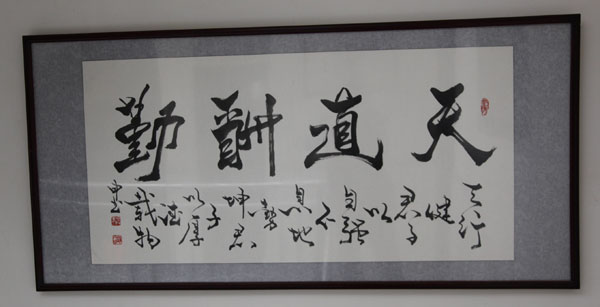 天道酬勤
天行
健
君子
以
自強
不
息地
勢
坤君
子
以厚
德
載物